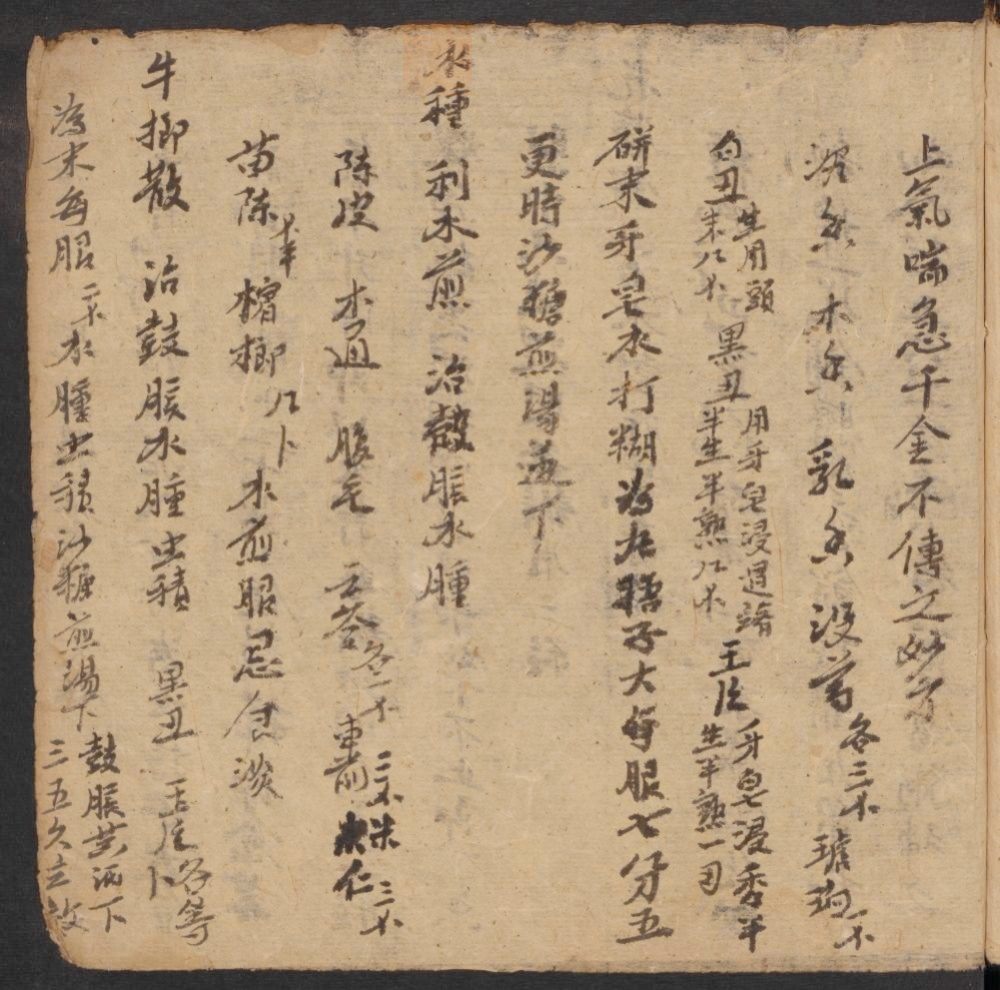 上氣喘急千金不傳之妙方
沉香 木香 乳香 沒藥各三不 琥珀一不
白丑生用頭末八不 黑丑用牙皂浸過半生半熟八不 玉片牙皂浸香半生半熟一
研末牙皂水打糊為丸梧子大每服七分五
更時沙糖煎湯送下
水種 利水煎 治皷脹水腫
陳皮 木通 腹毛 云苓各二不 車前 仁
茵陳 檳榔 水煎服忌食淡
牛榔散 治鼓脹水腫虫積 黑丑 玉片各等
為末每服二不水腫虫積沙糖煎湯下鼓脹黃酒下三五久立效